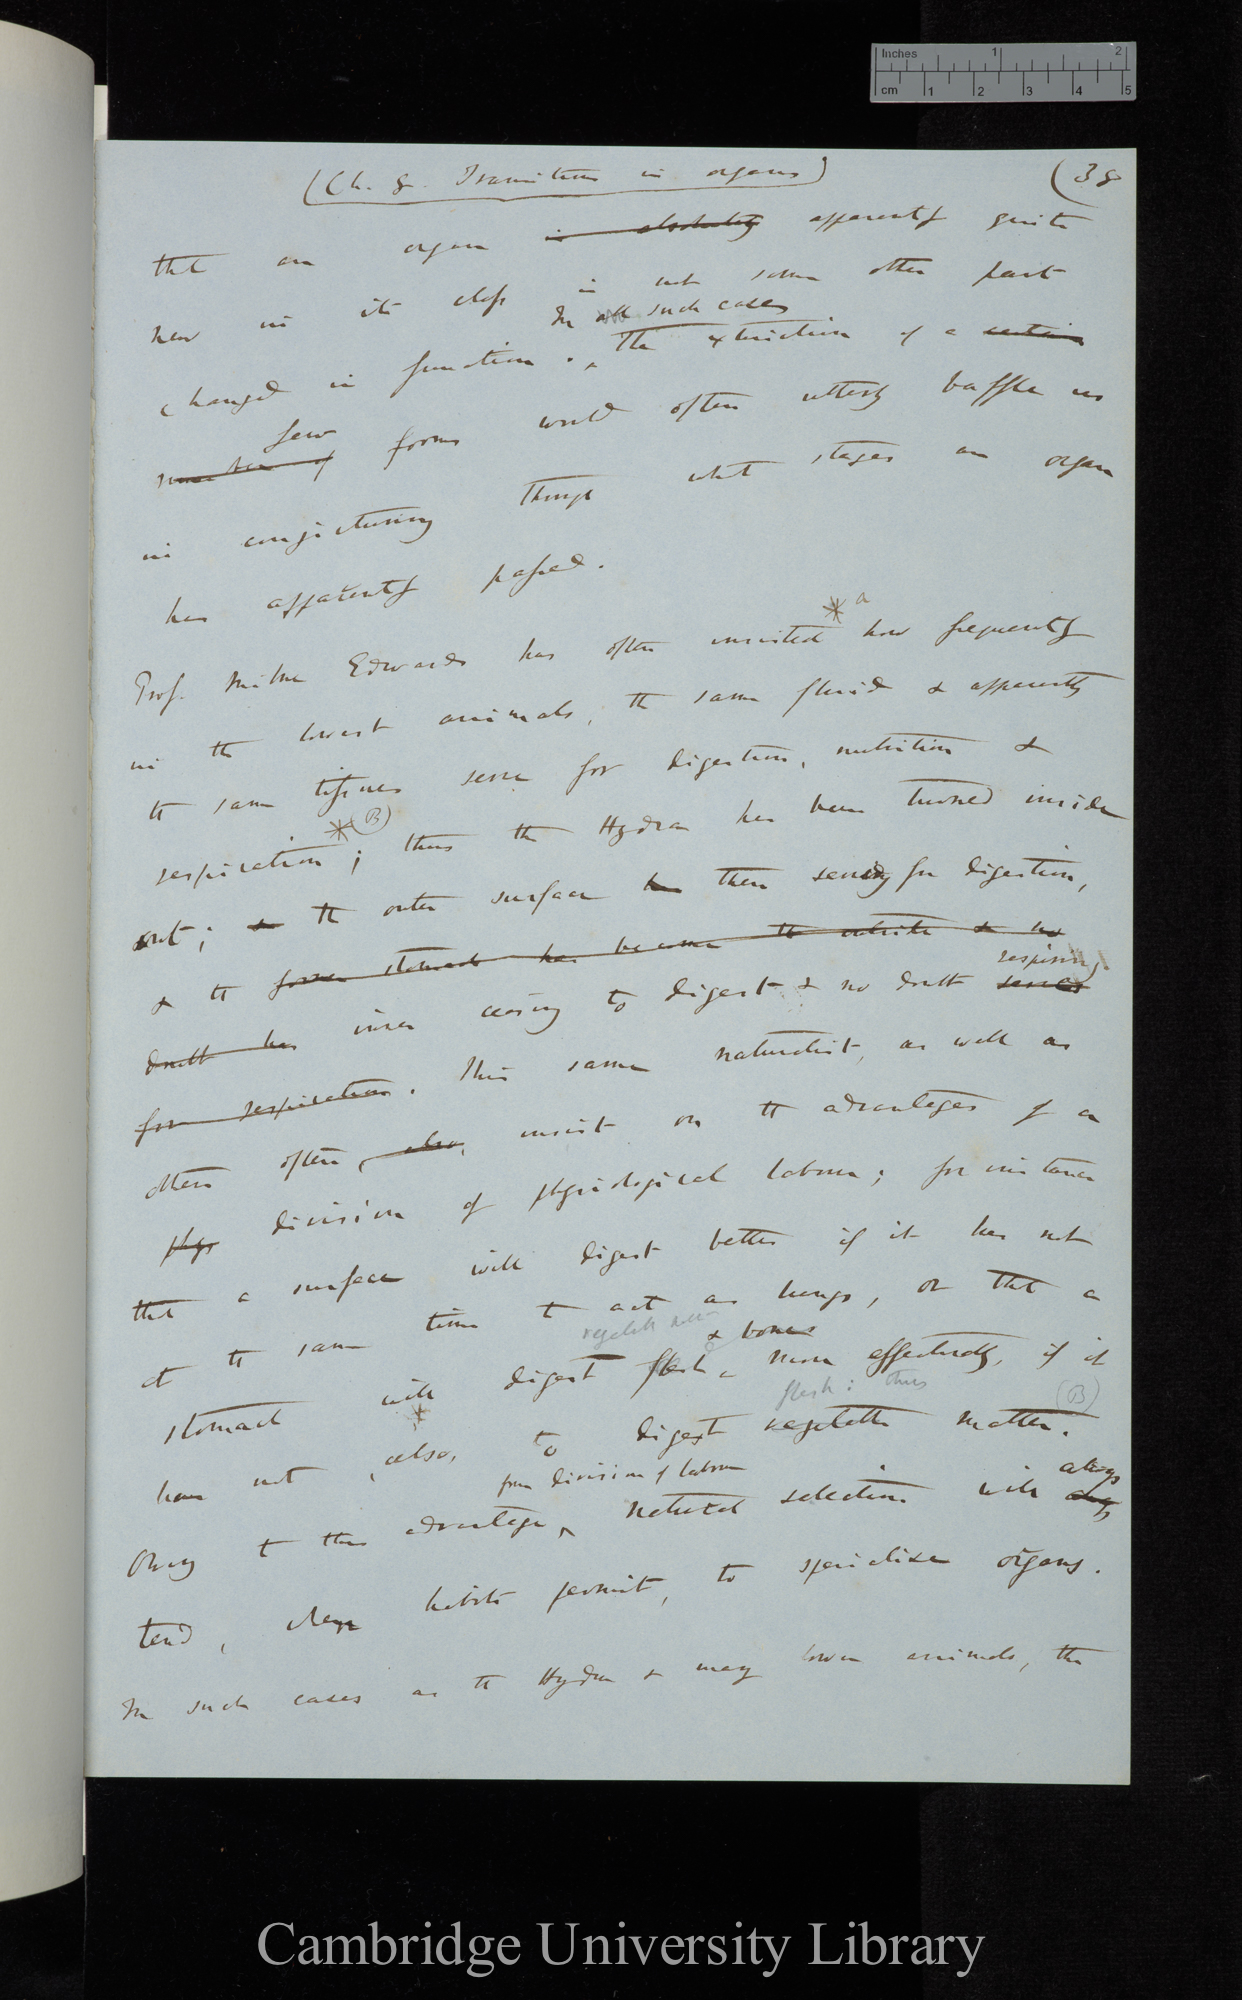 Inches 1 2
cm 1 2 3 4 5
(Ch. 8. Transitions in organs)
(38
that an organ is absolutely apparently quite
new in its class is not some other part
In all such cases
changed in function. The extinction of a certain
few
number of forms would often utterly baffle us
in conjecturing through what stages an organ
has apparently passed.
* a
Prof. Milne Edwards has often insisted how frequently
in the lowest animals, the same fluid & apparently
the same tissues serve for digestion, nutrition &
*(B)
respiration; thus the Hydra has been turned inside
out; & the outer surface has then serving for digestion,
& the former stomach has become the outside & no
respiring
doubt has inner ceasing to digest & no doubt serves
for respiration. This same naturalist, as well as
others often, also, insist on the advantages of a
phys division of physiological labour; for instance
that a surface will digest better if it has not
at the same time to act as lungs, or that a
vegetable matter & bones
stomach will digest flesh more effectually, if it
flesh: thus (B)
have not, also, to digest vegetable matter.
from division of labour always
Owing to this advantage, natural selection will always
tend, when habits permit, to specialise organs.
In such cases as the Hydra & many lower animals, the
Cambridge University Library